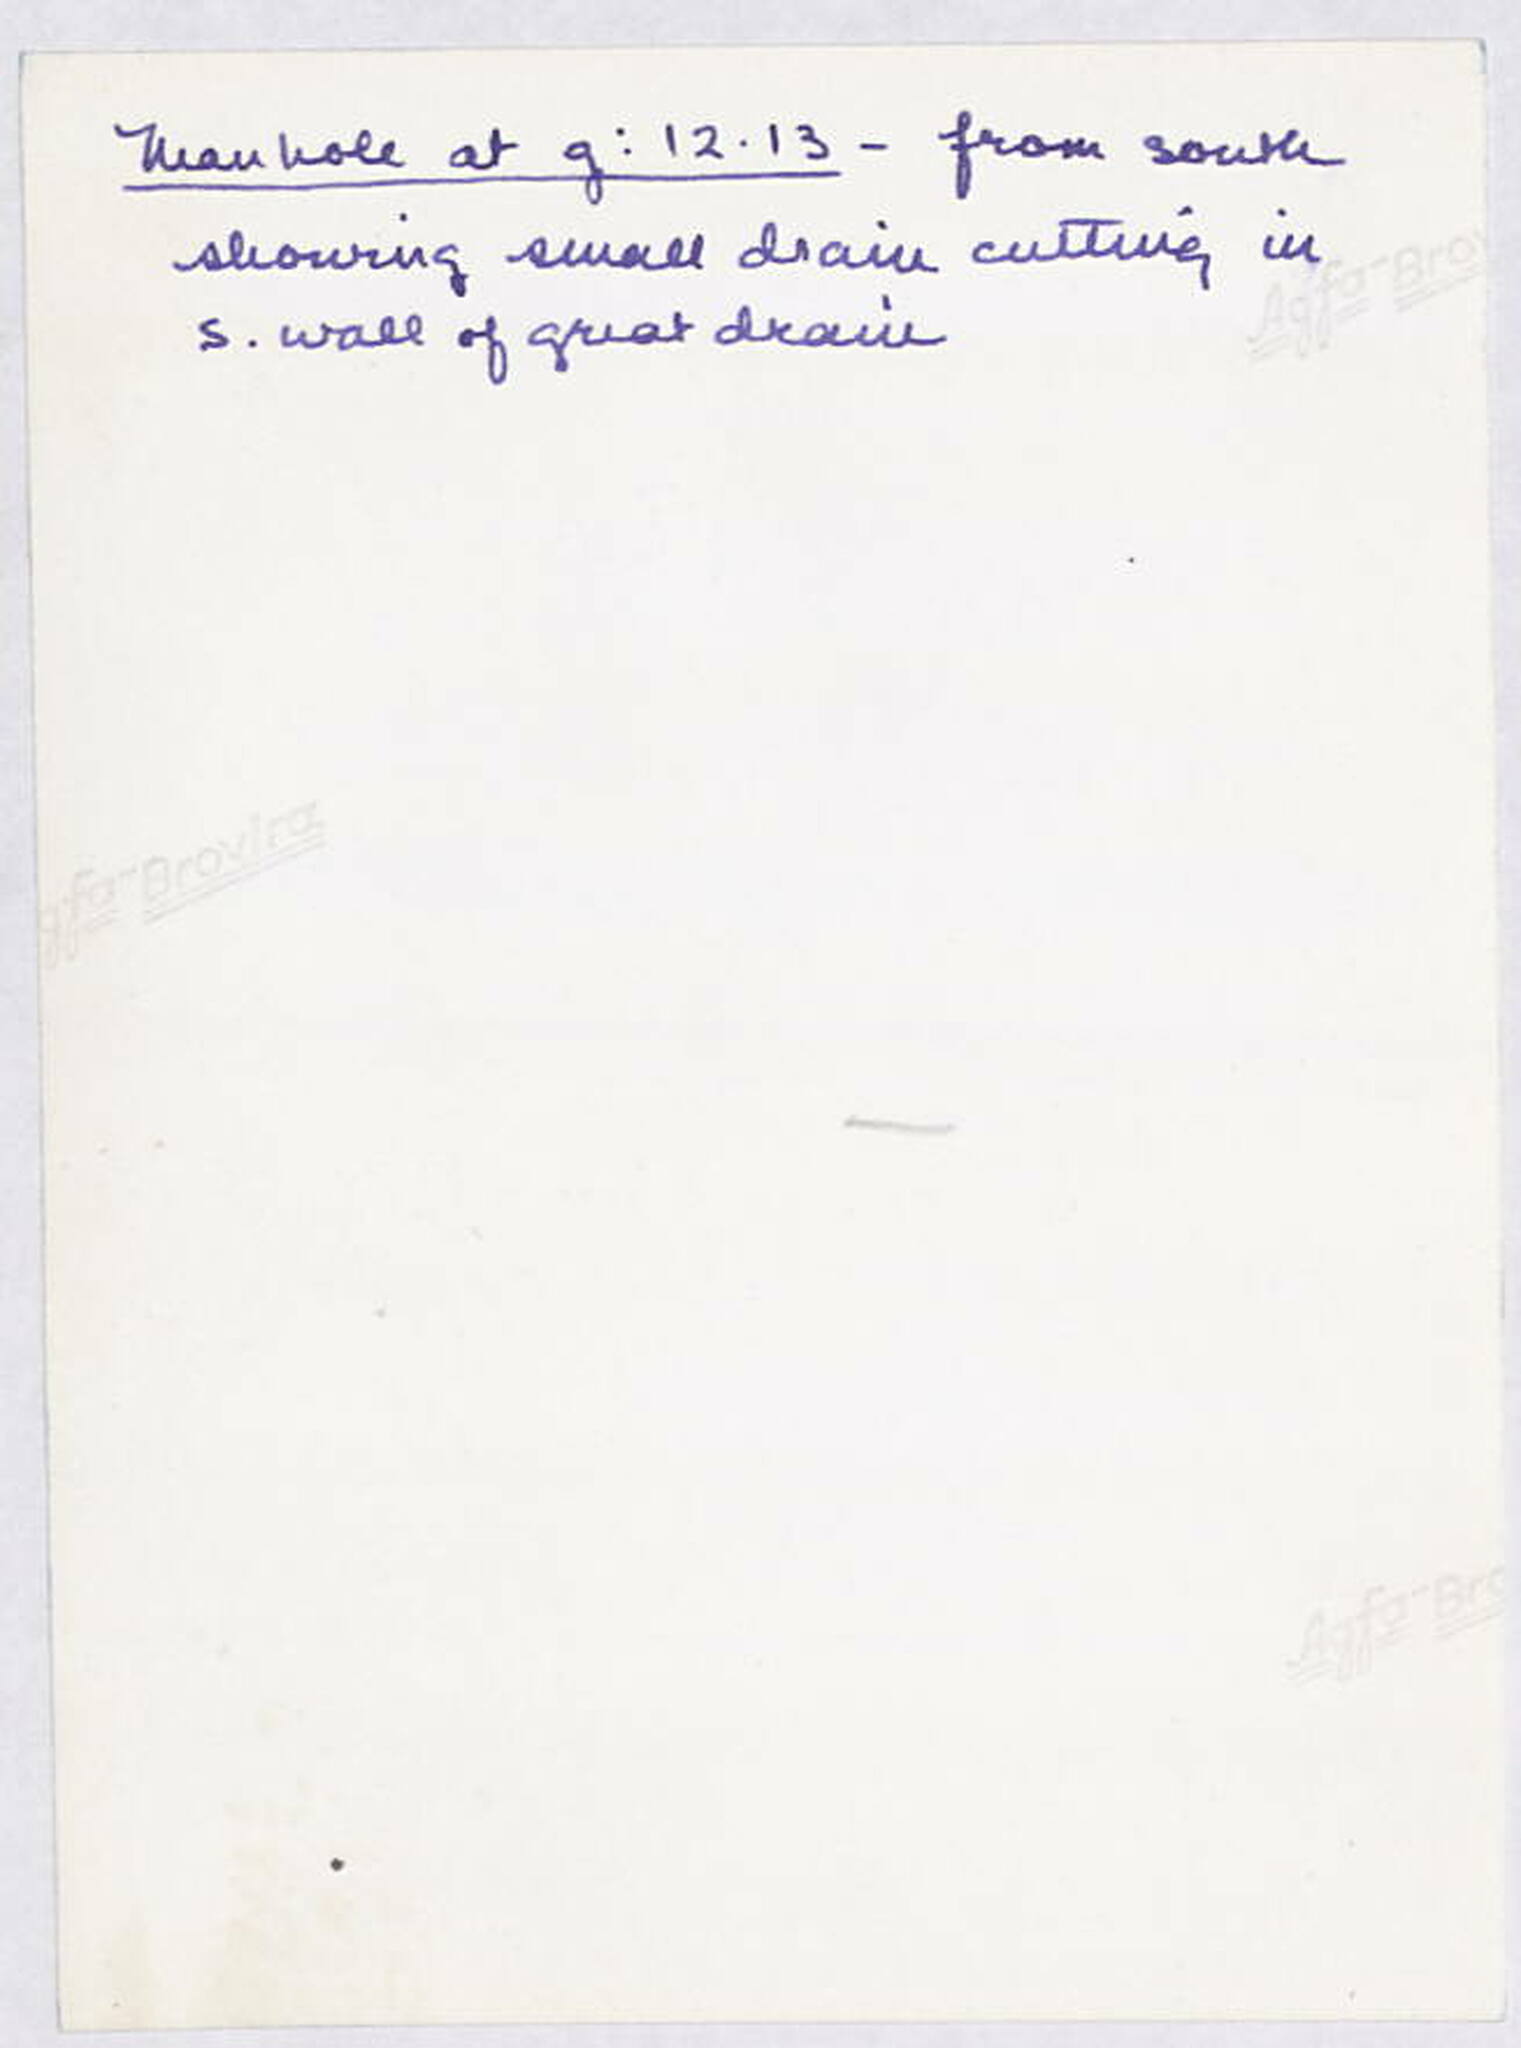 Manhole at g: 12.13 - from south
showing small drain cutting in
s. wall of great drain
Agfa-Brov
gfa-Brovira
Agfa-Bro